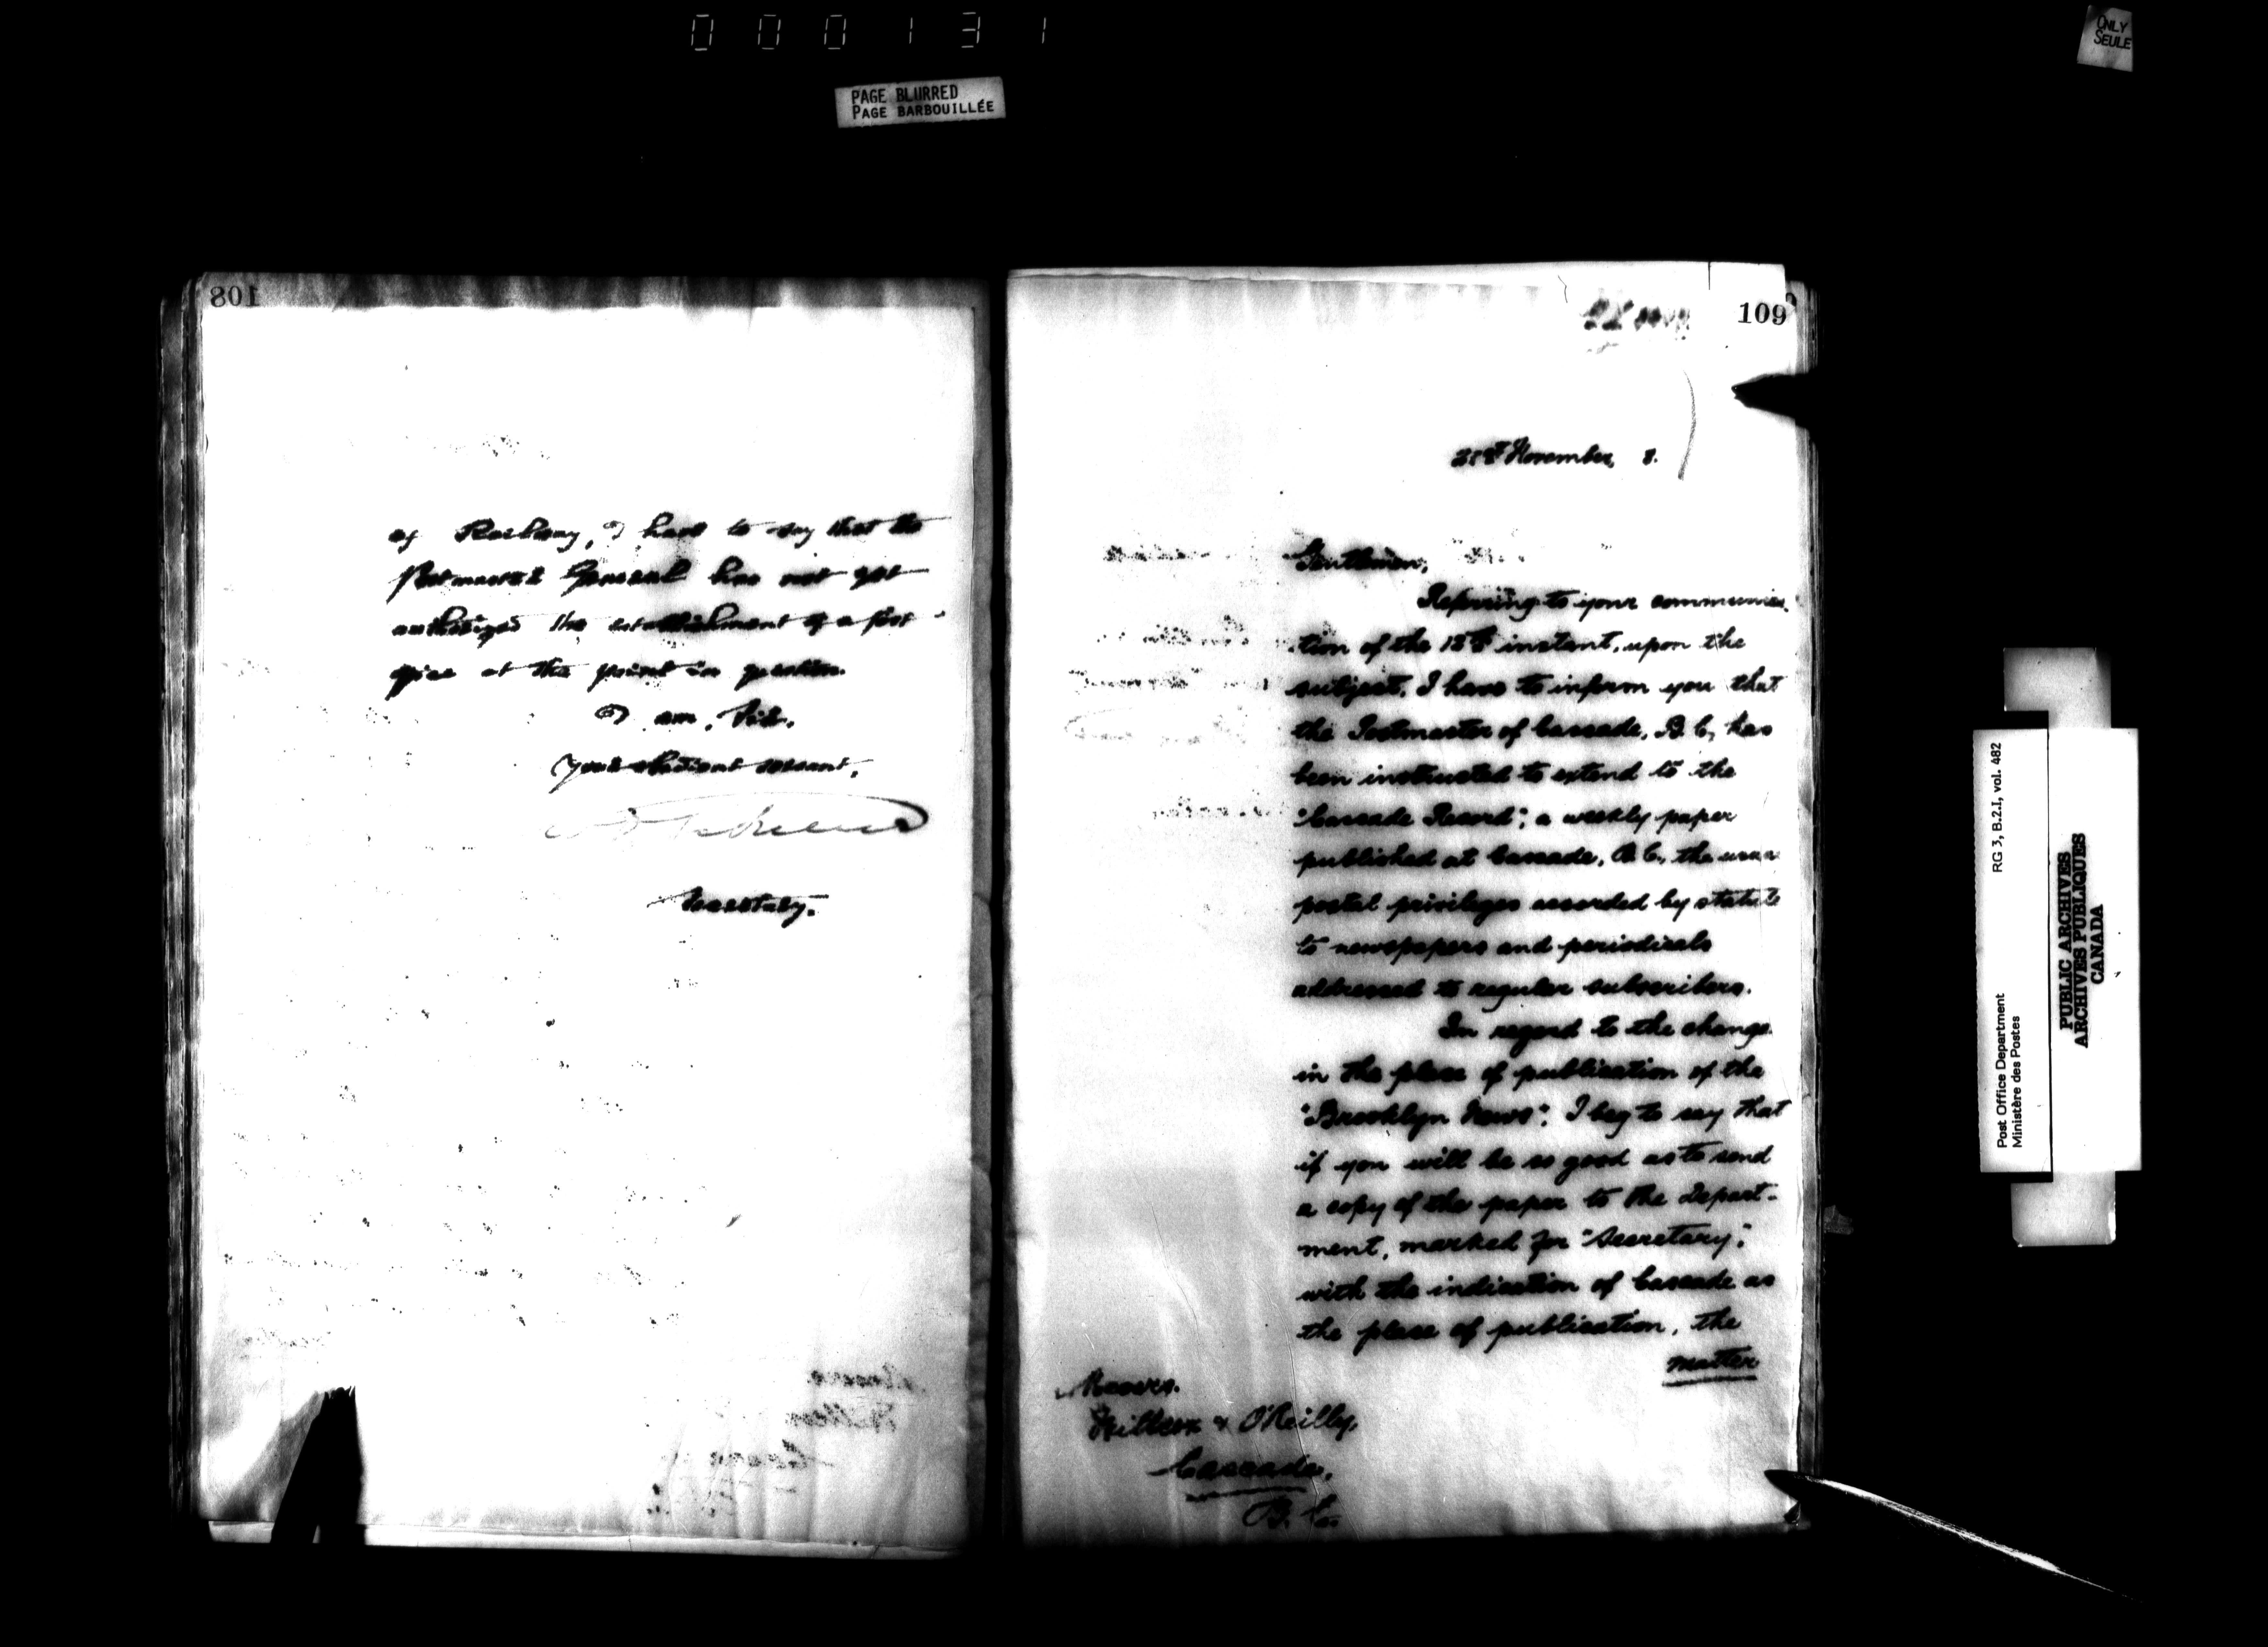 000131
PAGE BLURRED
PAGE BARBOUILLÉE
ONLY
SEULE
108
of Railway, I have to say that the
Postmaster General has not yet
authorized the establishment of a post
office at the point in question.
I am, Sir,
Your obedient servant,
Secretary.
109
November, 8.
Gentlemen,
Referring to your communica-
tion of the instant, upon the
subject, I have to inform you that
the Postmaster of Cascade, B.C., has
been instructed to extend to the
"Cascade Record", a weekly paper
published at Cascade, B.C., the usual
postal privileges accorded by statute
to newspapers and periodicals
addressed to regular subscribers.
In regard to the change
in the place of publication of the
"Brooklyn News", I beg to say that
if you will be so good as to send
a copy of the paper to the Depart-
ment, marked for "Secretary",
with the indication of Cascade as
the place of publication, the
matter
Messrs.
Willcox & O'Reilly,
Cascade,
B.C.
Post Office Department RG 3, B.2.I, vol. 482
Ministère des Postes
PUBLIC ARCHIVES
ARCHIVES PUBLIQUES
CANADA